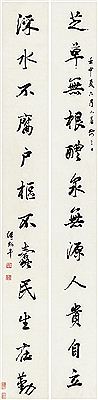 芝草無根醴泉無源人貴自立
壬申夏六月
流水不腐戶樞不蠹民生在勤